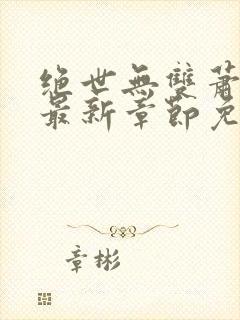 絕世無雙蕭
最新章節免
章彬